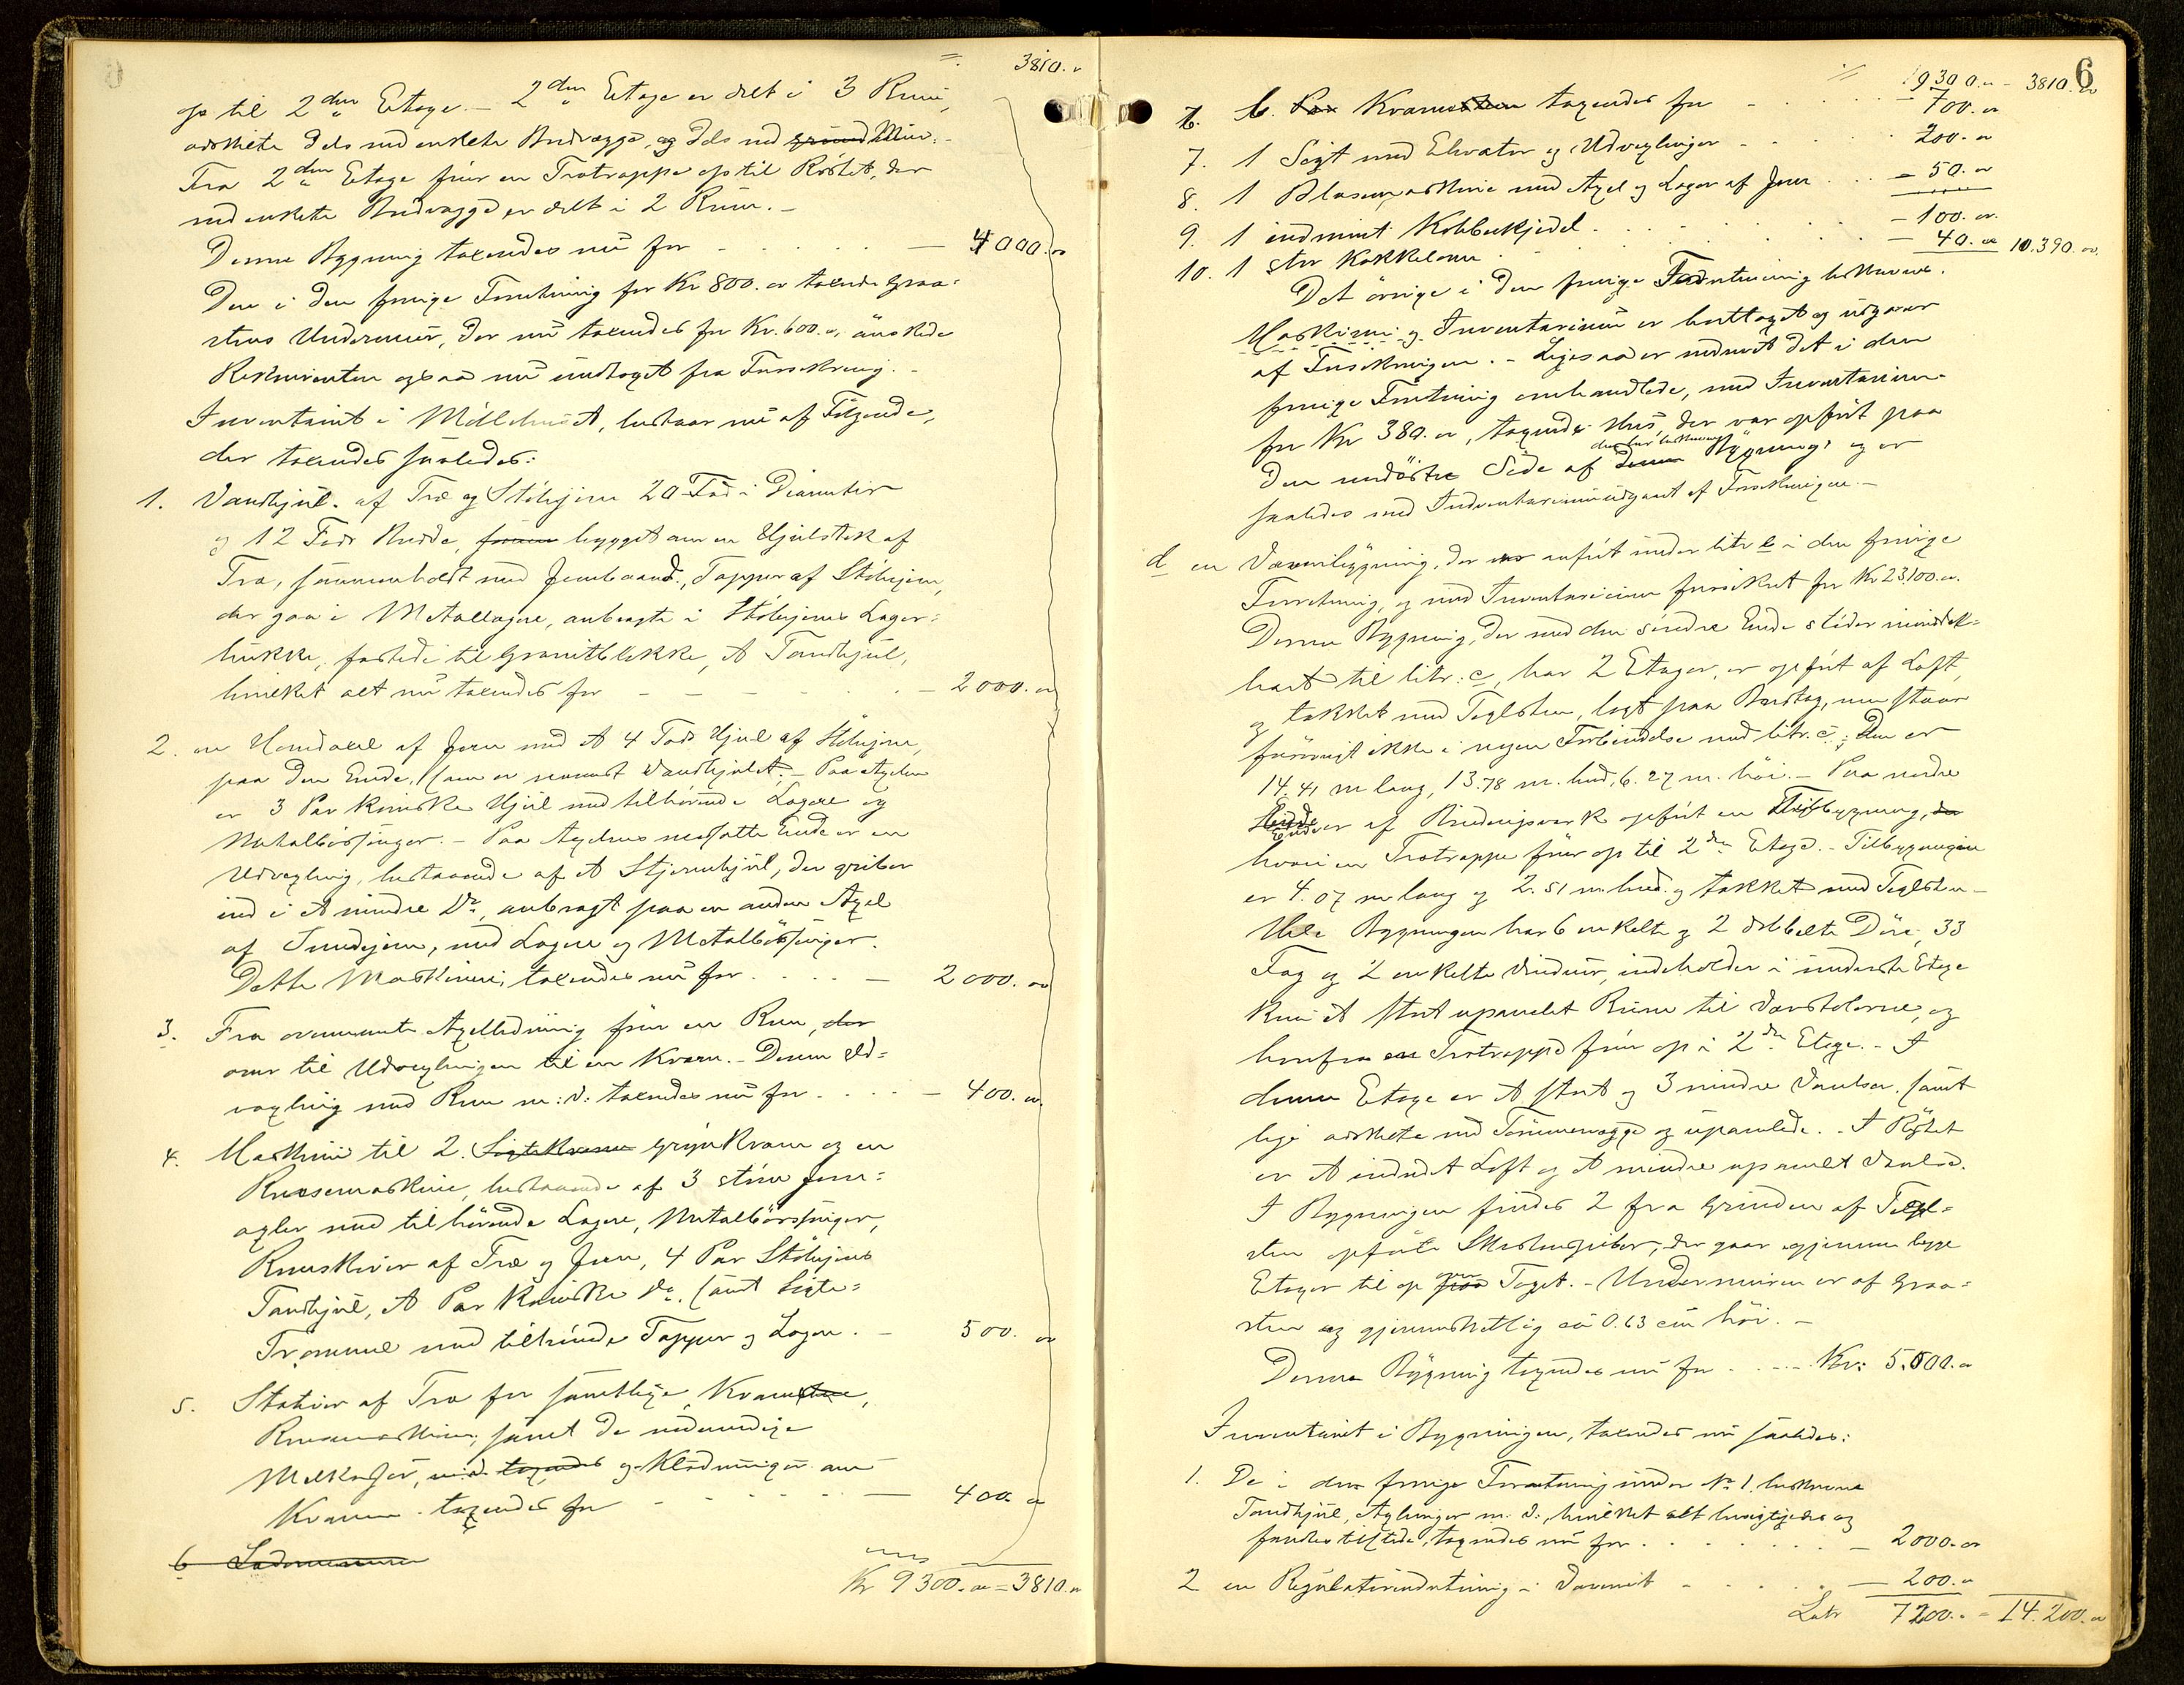 = 3810. "
op til 2den Etage. – 2den Etage er delt i 3 Rum,
adskilte dels med enkelte Bredvægge, og dels med Mur. –
Fra 2den Etage fører en Trætrappe op til Röstet, der
med enkelte Bredvægge er delt i 2 Rum. –
Denne Bygning taxeredes nu for – – – 4000. "
Den i den forrige Forretning for Kr 800. " taxerede Graa=
steins Undermur, der nu taxeredes for Kr. 600. ", önskede
Rekvirenten ogsaa nu undtaget fra Forsikring. –
Inventariet i Möllehuset, bestaar nu af Fölgende,
der taxeredes saaledes:
1. Vandhjul. af Træ og Stöbejern 20 Fod i Diameter
og 12 Fods Bredde, bygget om en Hjulstok af
Træ, sammenholdt med Jernbaand, Tapper af Stöbejern,
der gaa i Metallagere, anbragte i Stöbejerns Lager=
bukke, fæstede til Granitblokke, et Tandhjul,
hvilket alt nu taxeredes for – – – 2000. "
2. en Hovedaxel af Jern med et 4 Fods Hjul af Stöbejern,
paa den Ende, som er nærmest Vandhjulet. – Paa Axelen
er 3 Par koniske Hjul med tilhörende Lagere og
Metalbösninger. – Paa Axelens modsatte Ende er en
Udvexling, bestaaende af et Stjernehjul, der griber
ind i et mindre Do, anbragt paa en anden Axel
af Smedejern, med Lagere og Metalbösninger.
Dette Maskineri taxeredes nu for . . . . – 2000. "
3. Fra ovennævnte Axelledning fører en Rem, der
over til Udvexlingen til en Kværn. – Denne Ud=
vexling med Rem m: v: taxeredes nu for . . . . – 400. "
4. Maskineri til 2. Sigtekværne Grynkværn og en
Rensemaskine, bestaaende af 3 större Jern=
axler med tilhörende Lagere, Metalbösninger,
Remskiver af Træ og Jern, 4 Par Stöbejerns
Tandhjul, et Par koniske Do. samt Sigte=
Trommel med tilhörende Tapper og Lagere. – 500. "
5. Stativer af Træ for samtlige Kværnstene,
Rensemaskine, samt de nödvendige
Melkasser, taxeredes og Klædninger om
Kværne. taxeredes for – – – 400 "
6
Kr 9300. " = 3810. "
6
" 9300. " – 3810. "
6. 6. Par Kværnstene taxeredes for – . . . . – 700. "
7. 1 Sigt med Elevator og Udvexlinger – . . . . 200. "
8. 1 Blæsemaskine med Axel og Lager af Jern . . . – 50. "
9. 1 indmuret Kobberkjedel . . . . – 100. "
10. 1 stor Kakkelovn . . . . – 40. " 10.390. "
Det övrige i den forrige Forretning beskrevne
Maskineri og Inventarium er borttaget og udgaar
af Forsikringen. – Ligesaa er nedrevet det i den
forrige Forretning omhandlede, med Inventarium
for Kr 380. ", taxerede Hus, der var opfört paa
den nordöstre Side af denne Bygning, og er
den her beskrevne
saaledes med Inventarium udgaaet af Forsikringen. –
d en Væveribygning, der er anfört under litr e i den forrige
Forretning, og med Inventarium forsikret for Kr 23,100. ".
Denne Bygning, der med den söndre Ende stöder umiddel=
bart til litr: c, har 2 Etager, er opfört af Loft,
og tækket med Teglsten, lagt paa Bredtag, men staar
forövrigt ikke i nogen Forbindelse med litr. c. Den er
14.41 m lang, 13.78 m. bred, 6.27 m. höi. – Paa nordre
Ende er af Bindingsværk opfört en Tilbygning,
hvori en Trætrappe fører op til 2den Etage. – Tilbygningen
er 4.07 m lang og 2.51 m. bred. og tækket med Teglsten –
Hele Bygningen har 6 enkelte og 2 dobbelte Döre, 33
Fag og 2 enkelte Vinduer, indeholder i underste Etage
kun et stort upanelet Rum til Vævstolerne, og
herfra en Trætrappe fører op i 2den Etage. – I
denne Etage er et stort og 3 mindre Værelser, samt
lige adskilte med Tömmervægge og upanelede. – I Röstet
er et indredet Loft og et mindre upanelt Værelse.
I Bygningen findes 2 fra Grunden af Tegl=
sten opförte Skorstenspiber, der gaar igjennem begge
Etager til op over Taget. – Undermuren er af Graa=
sten og gjennemsnitlig ca 0.63 cm höi. –
Denne Bygning taxeredes nu for . . . . Kr: 5.000. "
Inventariet i Bygningen, taxeredes nu saaledes:
1. De i den forrige Forretning under No 1. beskrevne
Tandhjul, Axlinger m. v., hvilket alt
fandtes tilstede, taxeredes nu for . . . . – 2000. "
2 en Regulatorindretning i Væveriet – . . . . – 200. "
Latr 7200. " = 14.200. "